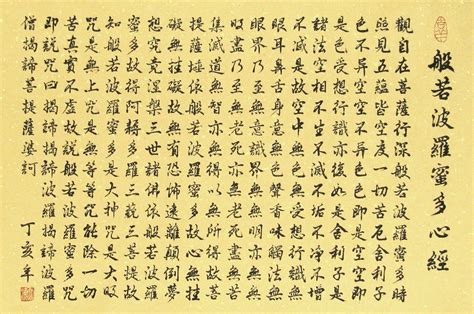 般若波羅蜜多心經
觀自在菩薩行深般若波羅蜜多時
照見五蘊皆空度一切苦厄舍利子
色不異空空不異色色即是空空即
是色受想行識亦復如是舍利子是
諸法空相不生不滅不垢不淨不增
不減是故空中無色無受想行識無
眼耳鼻舌身意無色聲香味觸法無
眼界乃至無意識界無無明亦無無明
盡乃至無老死亦無老死盡無苦
集滅道無智亦無得以無所得故菩
提薩埵依般若波羅蜜多故心無罣
礙無罣礙故無有恐怖遠離顛倒夢
想究竟涅槃三世諸佛依般若波羅
蜜多故得阿耨多羅三藐三菩提故
知般若波羅蜜多是大神咒是大明
咒是無上咒是無等等咒能除一切
苦真實不虛故說般若波羅蜜多咒
即說咒曰揭諦揭諦波羅揭諦波羅
僧揭諦菩提薩婆訶
丁亥年